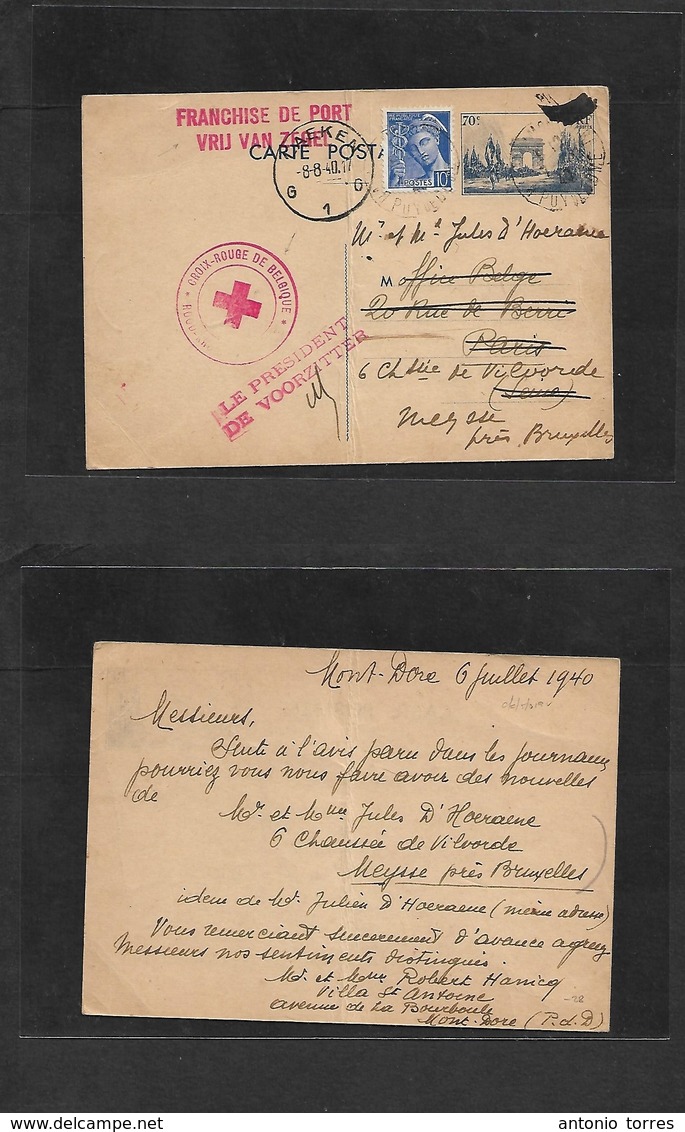 FRANCHISE DE PORT
VRIJ VAN ZEGEL
CARTE POSTA
LAEKEN
-8-8-40.17
G 1 G
POSTES 10c
70c
PUY DE DOME
CROIX-ROUGE DE BELGIQUE
LE PRESIDENT
DE VOORZITTER
Mr et Me Jules d'Hoeraene
M office Belge
20 Rue de Berri
Paris
6 Chssée de Vilvorde
(Seine)
Meysse
près Bruxelles
Mont-Dore 6 juillet 1940
Messieurs,
Suite à l'avis paru dans les journaux
pourriez vous nous faire avoir des nouvelles
de
Mr. et Mme Jules D'Hoeraene
6 Chaussée de Vilvorde
Meysse près Bruxelles
idem de Mr. Julien D'Hoeraene (même adresse)
Vous remerciant sincerement d'avance agreez
Messieurs nos sentiments distingués.
Mr. et Mme Robert Hanicq
Villa St Antoine
avenue de La Bourboule
Mont-Dore (P.d.D)
-28
antonio torres